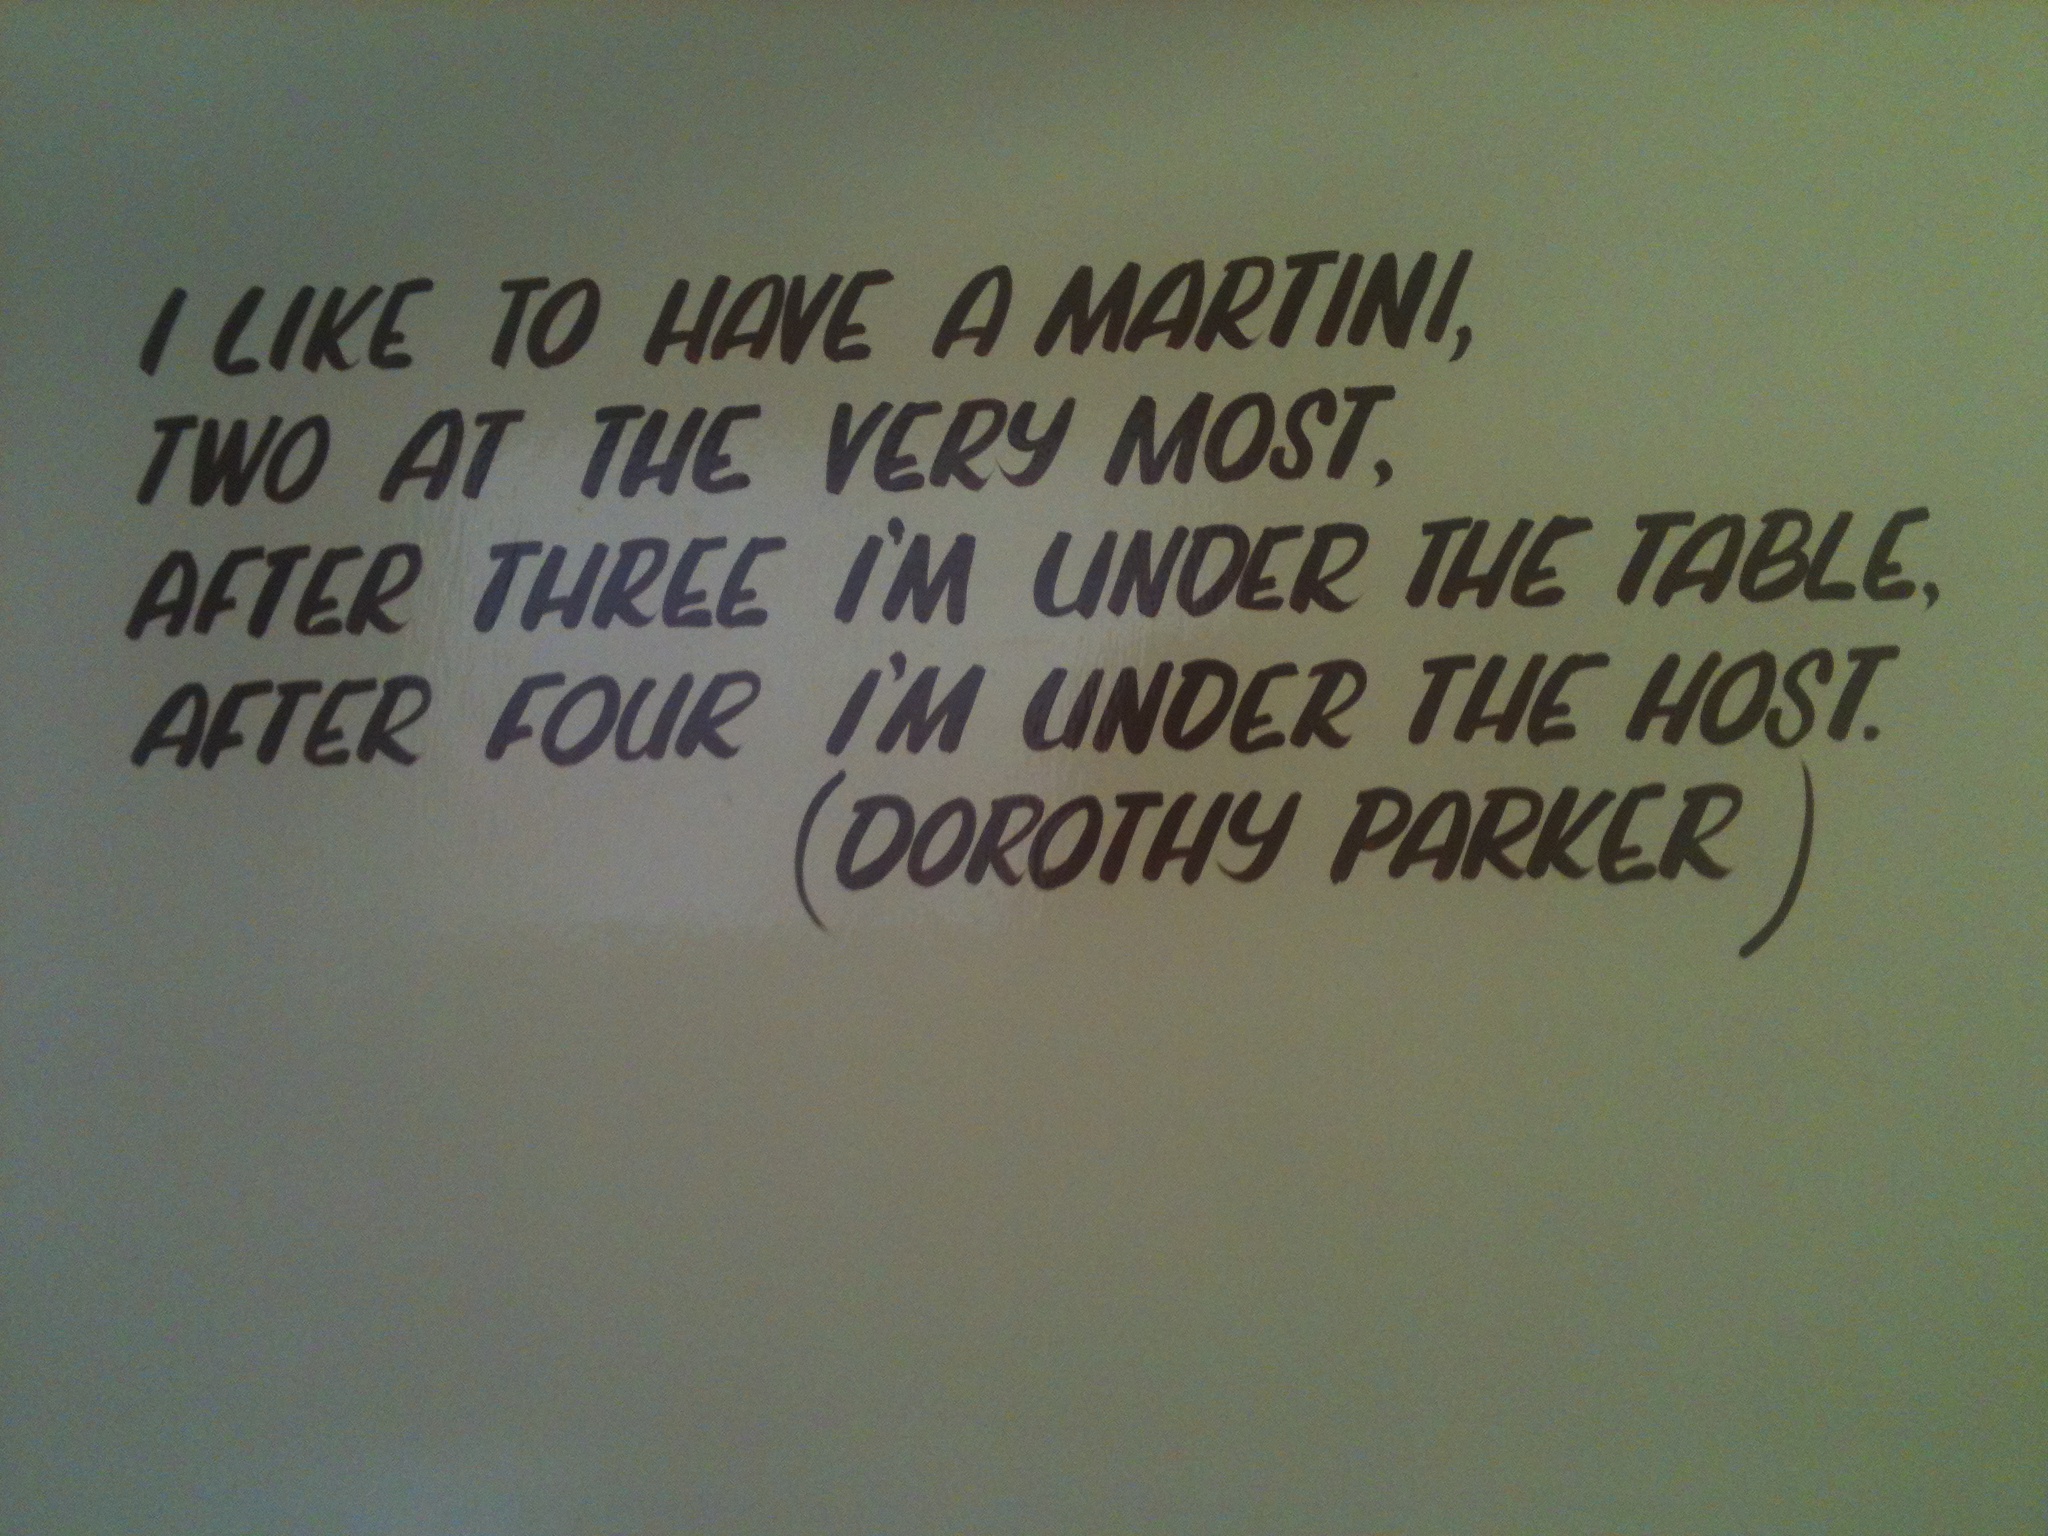 I LIKE TO HAVE A MARTINI,
TWO AT THE VERY MOST,
AFTER THREE I'M UNDER THE TABLE,
AFTER FOUR I'M UNDER THE HOST.
(DOROTHY PARKER)